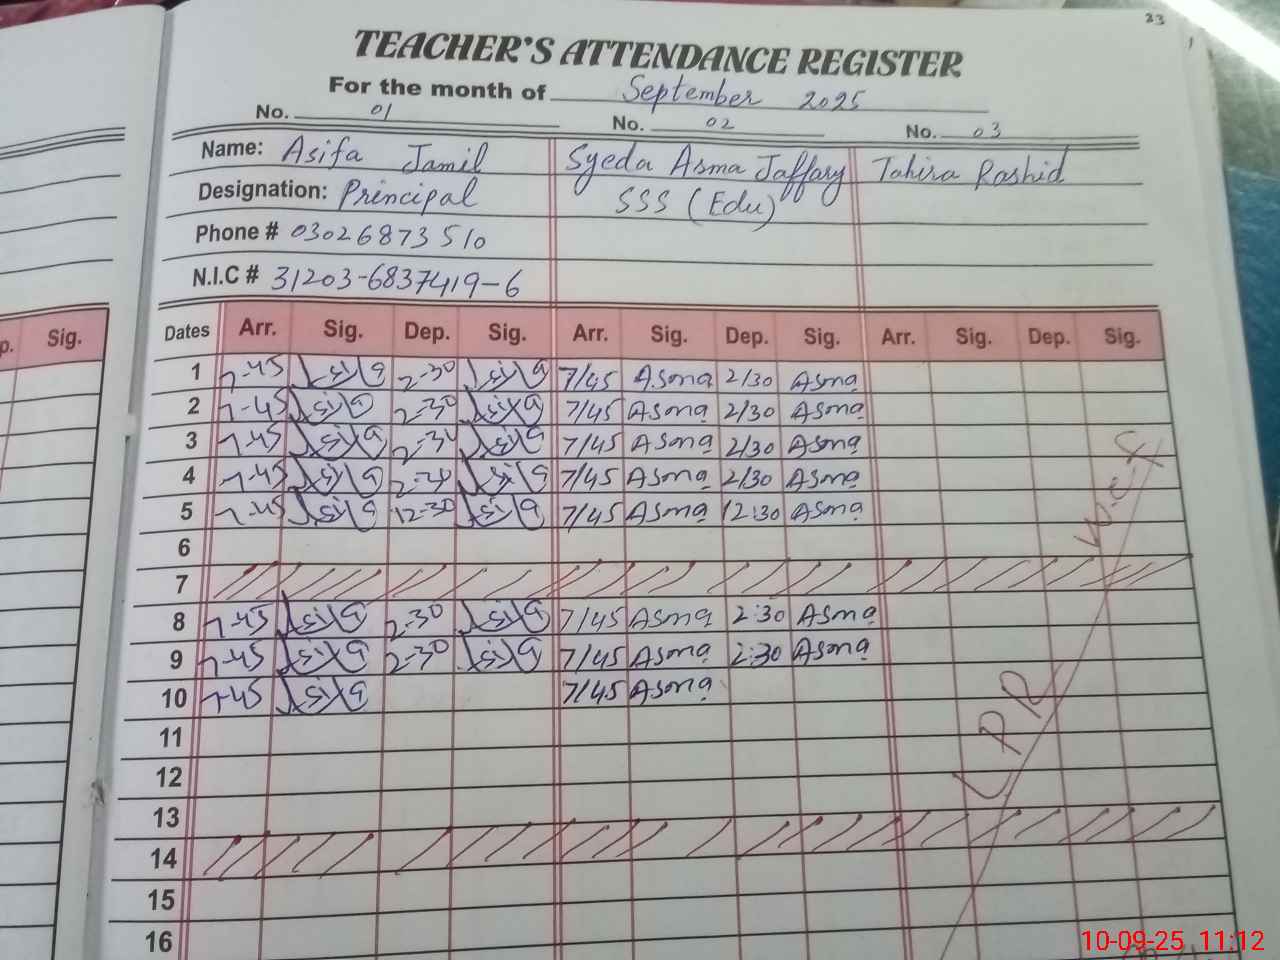 23
TEACHER'S ATTENDANCE REGISTER
For the month of September 2025
No. 01 No. 02 No. 03
Name: Asifa Jamil Syeda Asma Jaffary Tahira Rashid
Designation: Principal SSS (Edu)
Phone # 03026873510
N.I.C # 31203-6837419-6
p. Sig. Dates Arr. Sig. Dep. Sig. Arr. Sig. Dep. Sig. Arr. Sig. Dep. Sig.
1 7-45 Asifa 2-30 Asifa 7/45 Asma 2/30 Asma
2 7-45 Asifa 2-30 Asifa 7/45 Asma 2/30 Asma
3 7-45 Asifa 2-30 Asifa 7/45 Asma 2/30 Asma
4 7-45 Asifa 2-30 Asifa 7/45 Asma 2/30 Asma
5 7-45 Asifa 12-30 Asifa 7/45 Asma 12:30 Asma
6
7
8 7-45 Asifa 2-30 Asifa 7/45 Asma 2:30 Asma
9 7-45 Asifa 2-30 Asifa 7/45 Asma 2:30 Asma
10 7-45 Asifa 7/45 Asma
11
12
13
14
15
16
LPR w.e.f
10-09-25 11:12